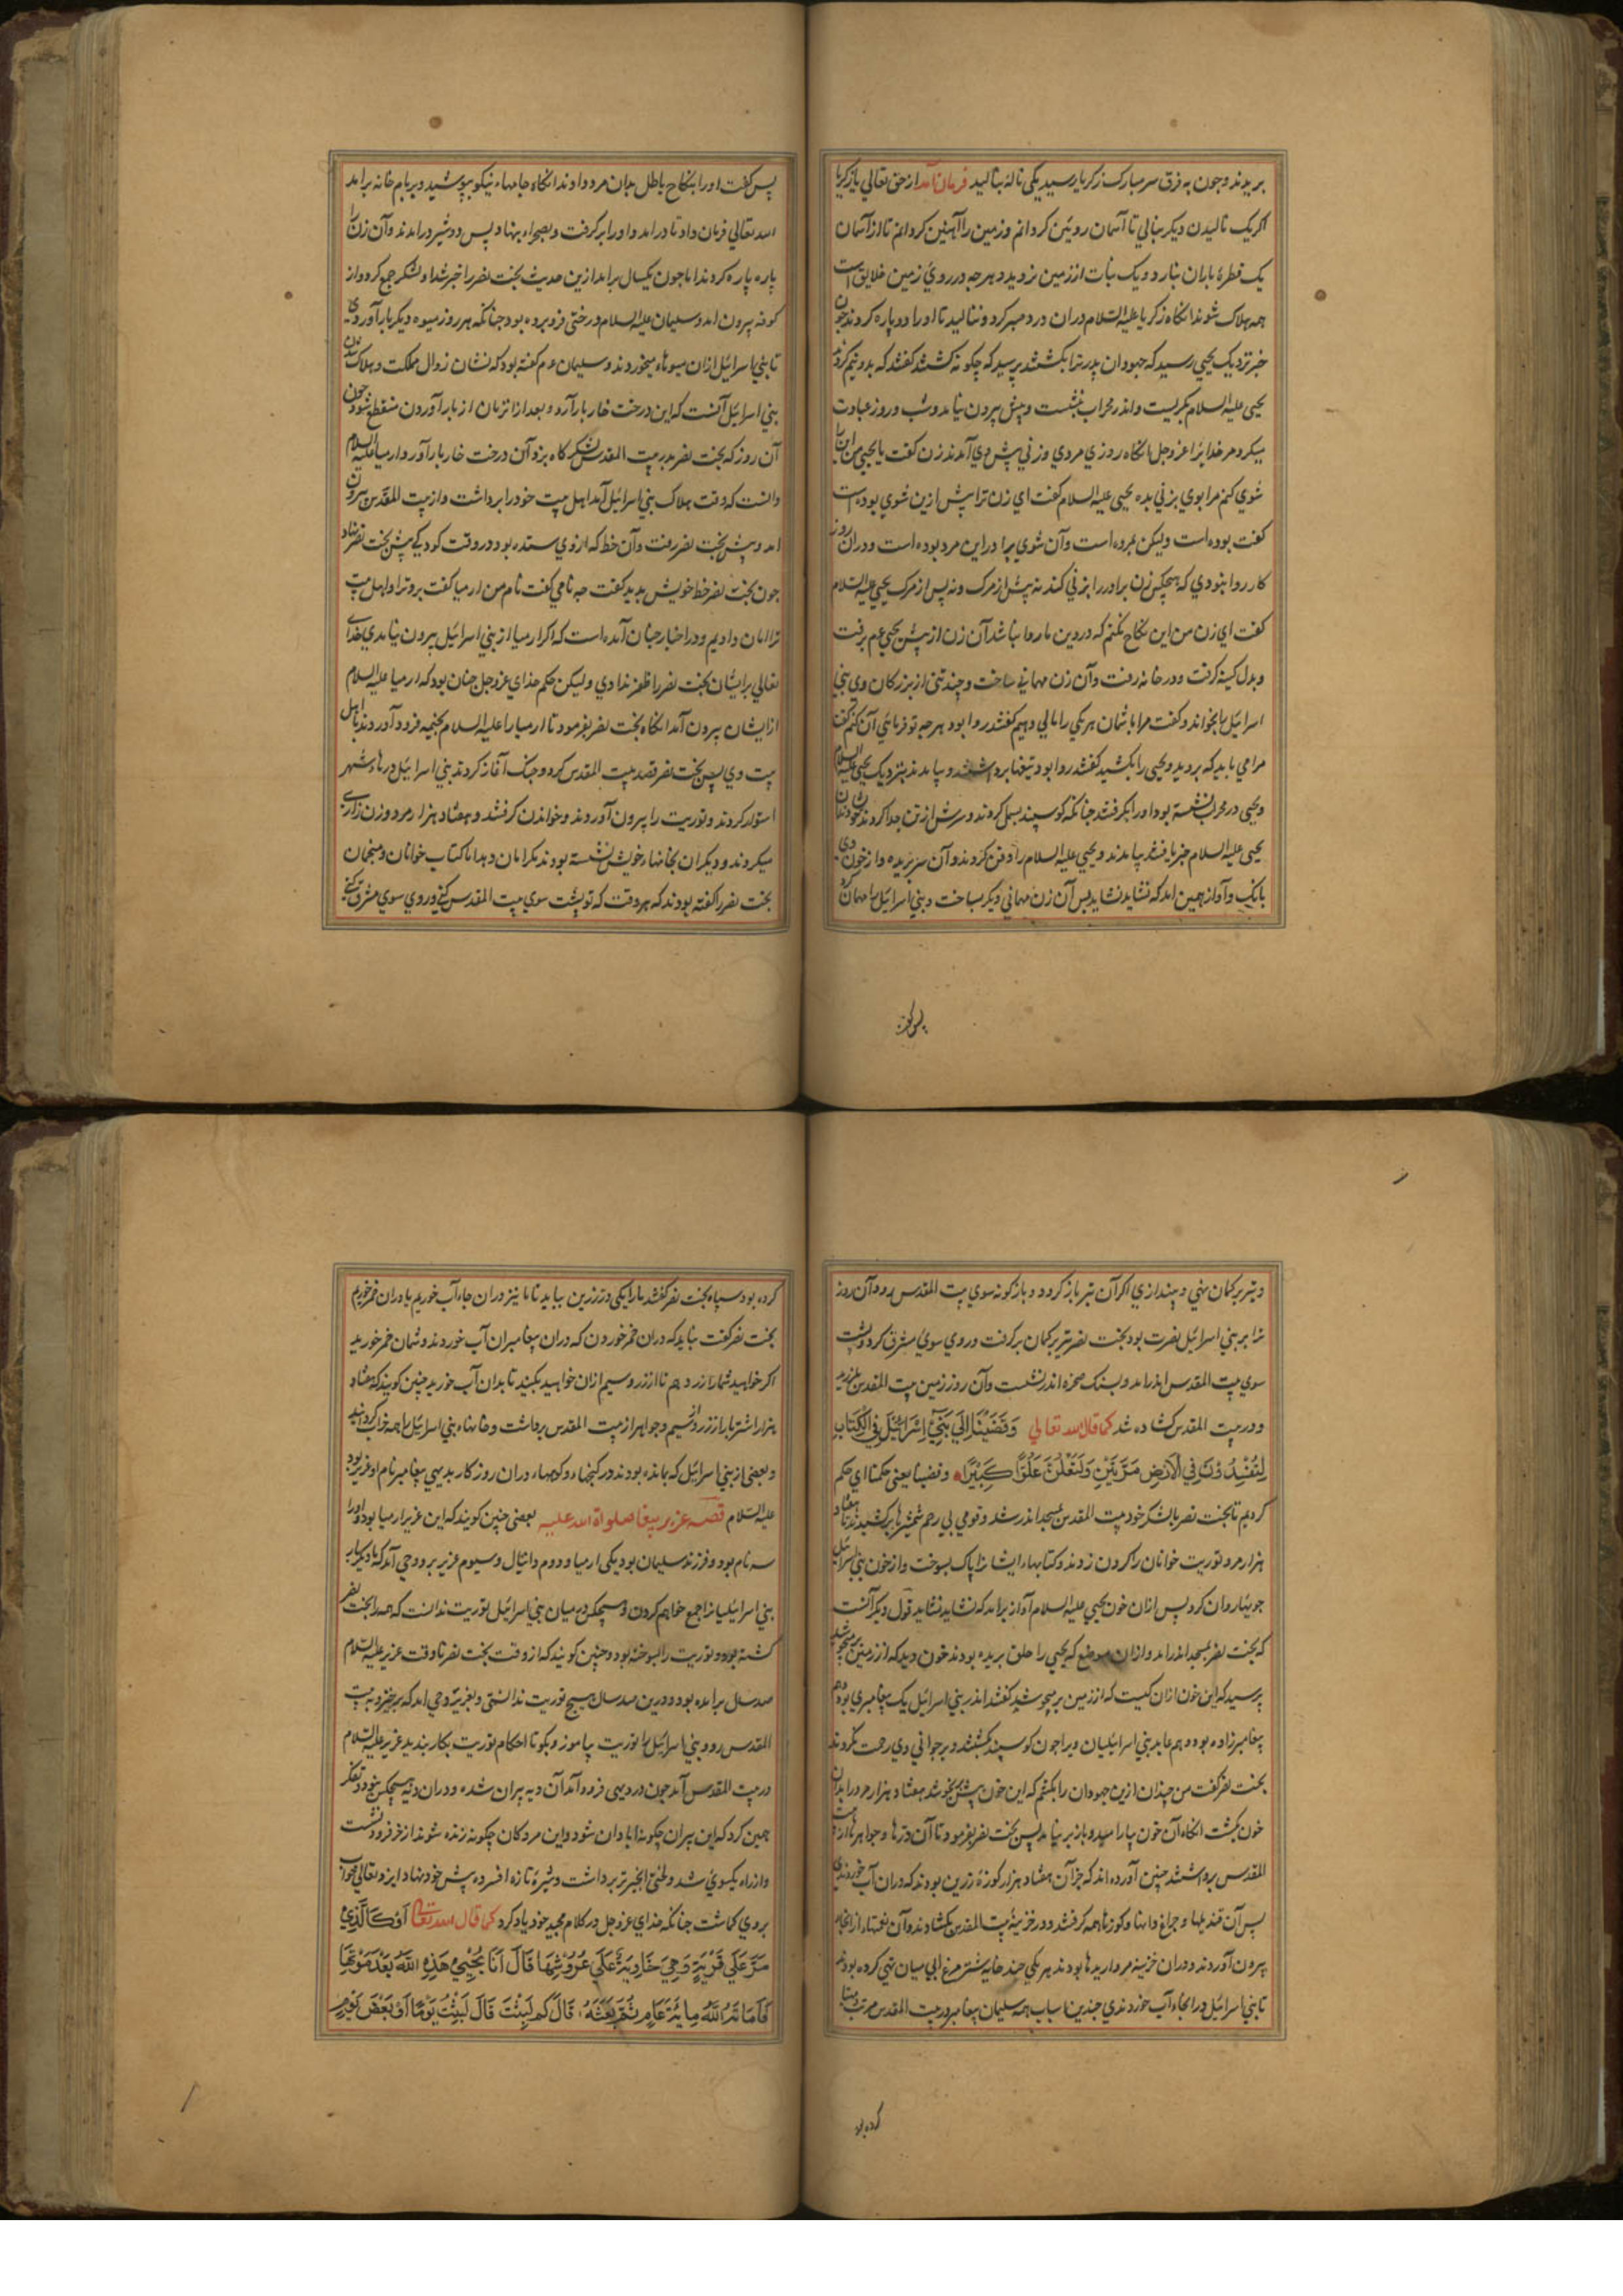 بریدند و چون به فرق سر مبارک زکریا رسید یکی ناله بنالید فرمان آمد از حق تعالی یا زکریا
اکر یک نالیدن دیکر بنالی تا آسمان رویین کردانم و زمین را آهنین کردانم تا از آسمان
یک قطرۀ باران نبارد و یک نبات از زمین نروید و هر چه در روی زمین خلایق است
همه هلاک شوند انکاه زکریا علیه السلام دران درد صبر کرد و ننالید تا او را دو پاره کردند چون
خبر نزدیک یحیی رسید که جهودان پدر ترا بکشتند پرسید که چکونه کشتند کفتند که بدو نیم کردند
یحیی علیه السلام بکریست و اندر محراب بنشست و پیش بیرون نیامد و شب و روز عبادت
میکرد مر خدایرا عز و جل انکاه روزی مردی و زنی پیش وی آمدند زن کفت یا یحیی من این را
شوی کنم مرا بوی بزنی بده یحیی علیه السلام کفت ای زن ترا پیش ازین شوی بوده است
کفت بوده است ولیکن مرده است و آن شوی برادر این مرد بوده است و دران روز
کار روا نبودی که هیچکس زن برادر را بزنی کند نه پیش از مرک و نه پس از مرک یحیی علیه السلام
کفت ای زن من این نکاح نکنم که در دین ما روا نباشد آن زن از پیش یحیی عم برفت
و بدل کینه کرفت و در خانه رفت و آن زن مهمانی ساخت و چند تنی از بزرکان وی بنی
اسرائیل را بخواند و کفت مرا باشمان هریکی را مالی دهیم کفتند روا بود هر چه تو فرمائی آن کنم کفت
مرا می باید که بروید و یحیی را بکشید کفتند روا بود تیغها برداشتند و بیامدند بنزدیک یحیی علیه السلام
و یحیی در محراب نشسته بود او را بکرفتند چنانکه کوسپند بسمل کردند و سرش از تن جدا کردند
یحیی علیه السلام خبر یافتند بیامدند و یحیی علیه السلام را دفن کردند و آن سر بریده و از خون وی
بانک و آواز همین امد که نشاید نشاید پس آن زن مهمانی دیکر ساخت و بنی اسرائیل را مهمان کرد
پس کفت
پس کفت او را بنکاح باطل بدان مرد دادند انکاه جامهاء نیکو بپوشید و بر بام خانه برامد
الله تعالی فرمان داد تا درامد و او را برکرفت و بصحراء بنهاد پس دو شیر درامدند و آن زن را
پاره پاره کردند اما چون یکسال برامد ازین حدیث بخت نصر را خبر شد او لشکر جمع کرد و از
کوفه بیرون امد و سلیمان علیه السلام درختی فرو برده بود چنانکه هر روز میوه دیکر بار آوردی
تا بنی اسرائیل ازان میوهاء میخوردند و سلیمان عم کفته بود که نشان زوال مملکت و هلاک شدن
بنی اسرائیل آنست که این درخت خار بار آرد و بعد از انزمان از بار آوردن منقطع شود چون
آن روز که بخت نصر بدر بیت المقدس لشکر کاه بزد آن درخت خار بار آورد ارمیا علیه السلام
دانست که وقت هلاک بنی اسرائیل آمد اهل بیت خود را برداشت و از بیت المقدس بیرون
امد و پیش بخت نصر رفت و آن خط که از وی ستده بود در وقت کودکی پیش بخت نصر نهاد
چون بخت نصر خط خویش بدید کفت چه نامی کفت نام من ارمیا کفت برو ترا و اهل بیت
ترا امان دادیم و در اخبار چنان آمده است که اکر ارمیا از بنی اسرائیل بیرون نیامدی خدای
تعالی برایشان بخت نصر را ظفر ندادی ولیکن حکم خدای عز و جل چنان بود که ارمیا علیه السلام
از ایشان بیرون آمد انکاه بخت نصر بفرمود تا ارمیا را علیه السلام بخیمه فرود آوردند با اهل
بیت وی پس بخت نصر قصد بیت المقدس کرد و جنک آغاز کردند بنی اسرائیل درهاء شهر
استوار کردند و توریت را بیرون آوردند و خواندن کرفتند و هفتاد هزار مرد و زن زاری
میکردند و دیکران بخانهاء خویش نشسته بودند مکرامان دهد اما کتاب خوانان و منجمان
بخت نصر را کفته بودند که هر وقت که تو پشت سوی بیت المقدس کنی و روی سوی مشرق کنی
و تیر بر کمان نهی و بیندازی اکر آن تیر باز کردد و باز کونه سوی بیت المقدس رود آن روز
ترا بر بنی اسرائیل نصرت بود بخت نصر تیر بر کمان برکرفت و روی سوی مشرق کرد و پشت
سوی بیت المقدس اندر امد و بسنک صخره اندر نشست و آن روز زمین بیت المقدس بلرزید
و در بیت المقدس کشاده شد کما قال الله تعالی وَقَضَيْنَا إِلَى بَنِي إِسْرَائِيلَ فِي الْكِتَابِ
لَتُفْسِدُنَّ فِي الْأَرْضِ مَرَّتَيْنِ وَلَتَعْلُنَّ عُلُوًّا كَبِيرًا وقضینا یعنی حکمنا ای حکم
کردیم تا بخت نصر با لشکر خود بیت المقدس بمسجد اندر شد و قومی بی رحم شمشیرها برکشیدند تا هفتاد
هزار مرد توریت خوانان را کردن زدند و کتابهاء ایشانرا پاک بسوخت و از خون بنی اسرائیل
جویها روان کرد پس ازان خون یحیی علیه السلام آواز برامد که نشاید نشاید قول دیکر آنست
که بخت نصر بمسجد اندر امد و ازان موضع که یحیی را حلق بریده بودند خون دید که از زمین برمیجوشید
پرسید که این خون ازان کیست که از زمین برمیجوشد کفتند اندر بنی اسرائیل یک پیغامبری بوده
پیغامبر زاده بود و هم عابد بنی اسرائیلیان ویرا چون کوسپند بکشتند و بر جوانی وی رحمت نکردند
بخت نصر کفت من چندان ازین جهودان را بکشم که این خون پیش نجوشد هفتاد هزار مرد را بدان
خون بکشت انکاه آن خون بیارامید و باز بر نیامد پس بخت نصر بفرمود تا آن درها و جواهر را از بیت
المقدس برداشتند چنین آورده اند که جز آن هفتاد هزار کوزۀ زرین بودند که دران آب خوردندی
پس آن قندیلها و چراغ دانها و کوزها همه کرفتند و در خزینۀ بیت المقدس بکشادند و آن نعمتها از انجا
بیرون آوردند و دران خزینه مرواریدها بودند هر یکی چند خایۀ شتر مرغ ابی میان تهی کرده بودند
تا بنی اسرائیل در انجاء آب خوردندی چندین اسباب همه سلیمان پیغامبر در بیت المقدس مرتب
کرده بود
کرده بود سپاه بخت نصر کفتند ما را یکی در زرین بباید تا ما نیز دران جاء آب خوریم یا دران خمر خوریم
بخت نصر کفت نباید که دران خمر خوردن که دران پیغامبران آب خوردند و شمان خمر خورید
اکر خواهید شما را زر دهم تا از زر و سیم ازان خواهید بکنید تا بدان آب خورید چنین کویند که هفتاد
هزار اشتر بار از زر و سیم و جواهر از بیت المقدس برداشت و خانهاء بنی اسرائیل را همه خراب کردانید
و بعضی از بنی اسرائیل که بمانده بودند در کنجها و کوهها و دران روزکار بدیهی پیغامبر نام او عزیر بود
علیه السلام قصه عزیر پیغا صلواة الله علیه بعضی چنین کویند که این عزیر ارمیا بود و او را
سه نام بود و فرزند سلیمان بود یکی ارمیا و دوم دانیال و سیوم عزیر برو وحی آمد که بار دیکر
بنی اسرائیلیانرا جمع خواهم کردن و هیچکس در میان بنی اسرائیل توریت ندانست که همه را بخت نصر
کشته بود و توریت را بسوخته بود و چنین کویند که از وقت بخت نصر تا وقت عزیر علیه السلام
صد سال برامده بود و درین صد سال هیچ توریت ندانستی و بعزیر وحی امد که برخیز و به بیت
المقدس رو و بنی اسرائیل را توریت بیاموز و بکو تا احکام توریت بکار بندید عزیر علیه السلام
در بیت المقدس آمد چون در دیهی فرود آمد آن دیه بیران شده و دران دیه هیچکس نبود تفکر
همین کرد که این بیران چکونه ابادان شود و این مردکان چکونه زنده شوند از خر فرود نشست
و از راه یکسوی شد و لختی انجیر تر برداشت و شیرۀ تازه افسرده پیش خود نهاد ایزد تعالی خواب
بر وی کماشت چنانکه خدای عز و جل در کلام مجید خود یاد کرد کما قال الله تعالی أَوْ كَالَّذِي
مَرَّ عَلَى قَرْيَةٍ وَهِيَ خَاوِيَةٌ عَلَى عُرُوشِهَا قَالَ أَنَّى يُحْيِي هَذِهِ اللَّهُ بَعْدَ مَوْتِهَا
فَأَمَاتَهُ اللَّهُ مِائَةَ عَامٍ ثُمَّ بَعَثَهُ قَالَ كَمْ لَبِثْتَ قَالَ لَبِثْتُ يَوْمًا أَوْ بَعْضَ يَوْمٍ